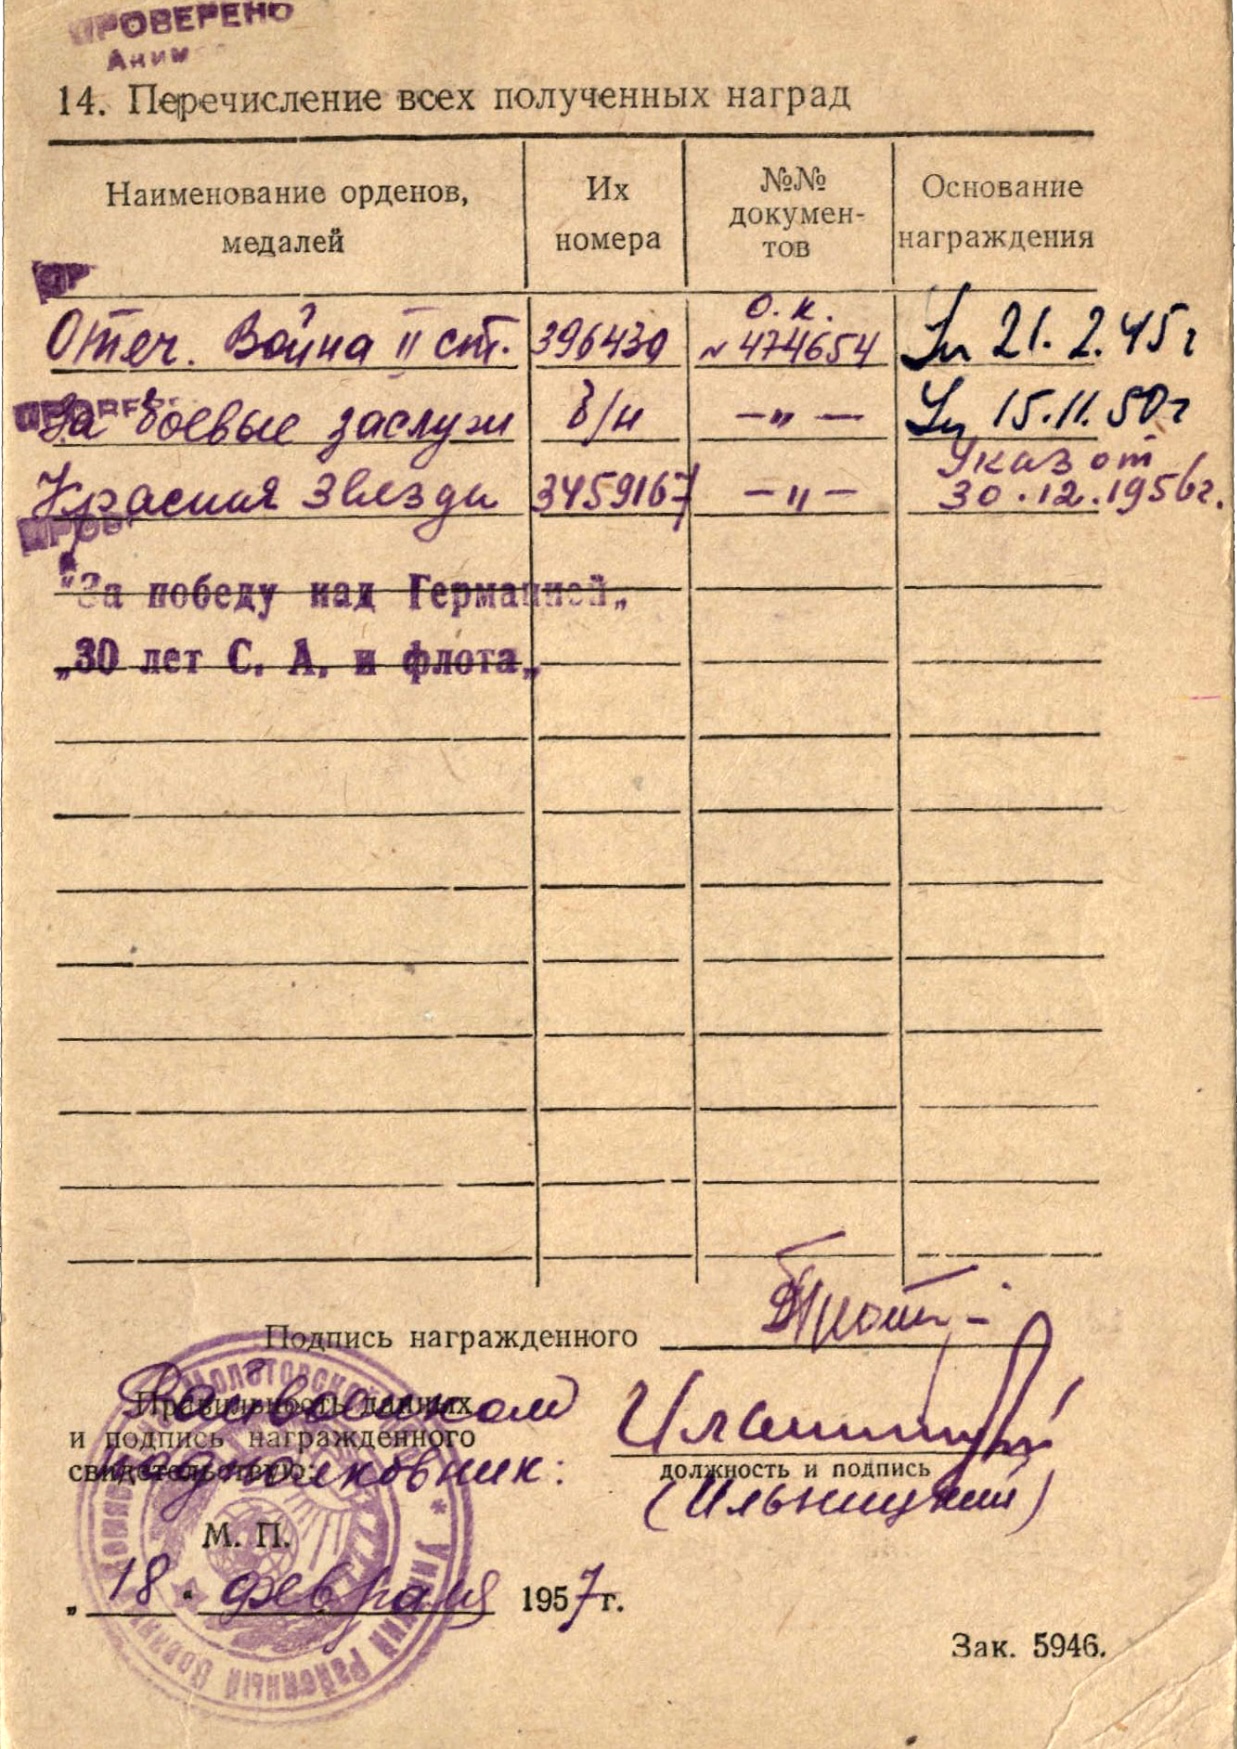 ПРОВЕРЕНО
14. Перечисление всех полученных наград
Наименование орденов, медалей
Их номера
№№ докумен-тов
Основание награждения
Отеч. Война II ст. 396430 О.К. № 474654 21.2.45 г
За боевые заслуги б/н —"— 15.11.50 г
Красная Звезда 3459167 —"— Указ от 30.12.1956 г.
"За победу над Германией„
„30 лет С. А. и флота„
Подпись награжденного
Правильность данных
и подпись награжденного
свидетельствую:
Райвоенком
подполковник:
должность и подпись
(Ильницкий)
М. П.
„18" февраля 1957 г.
Зак. 5946.